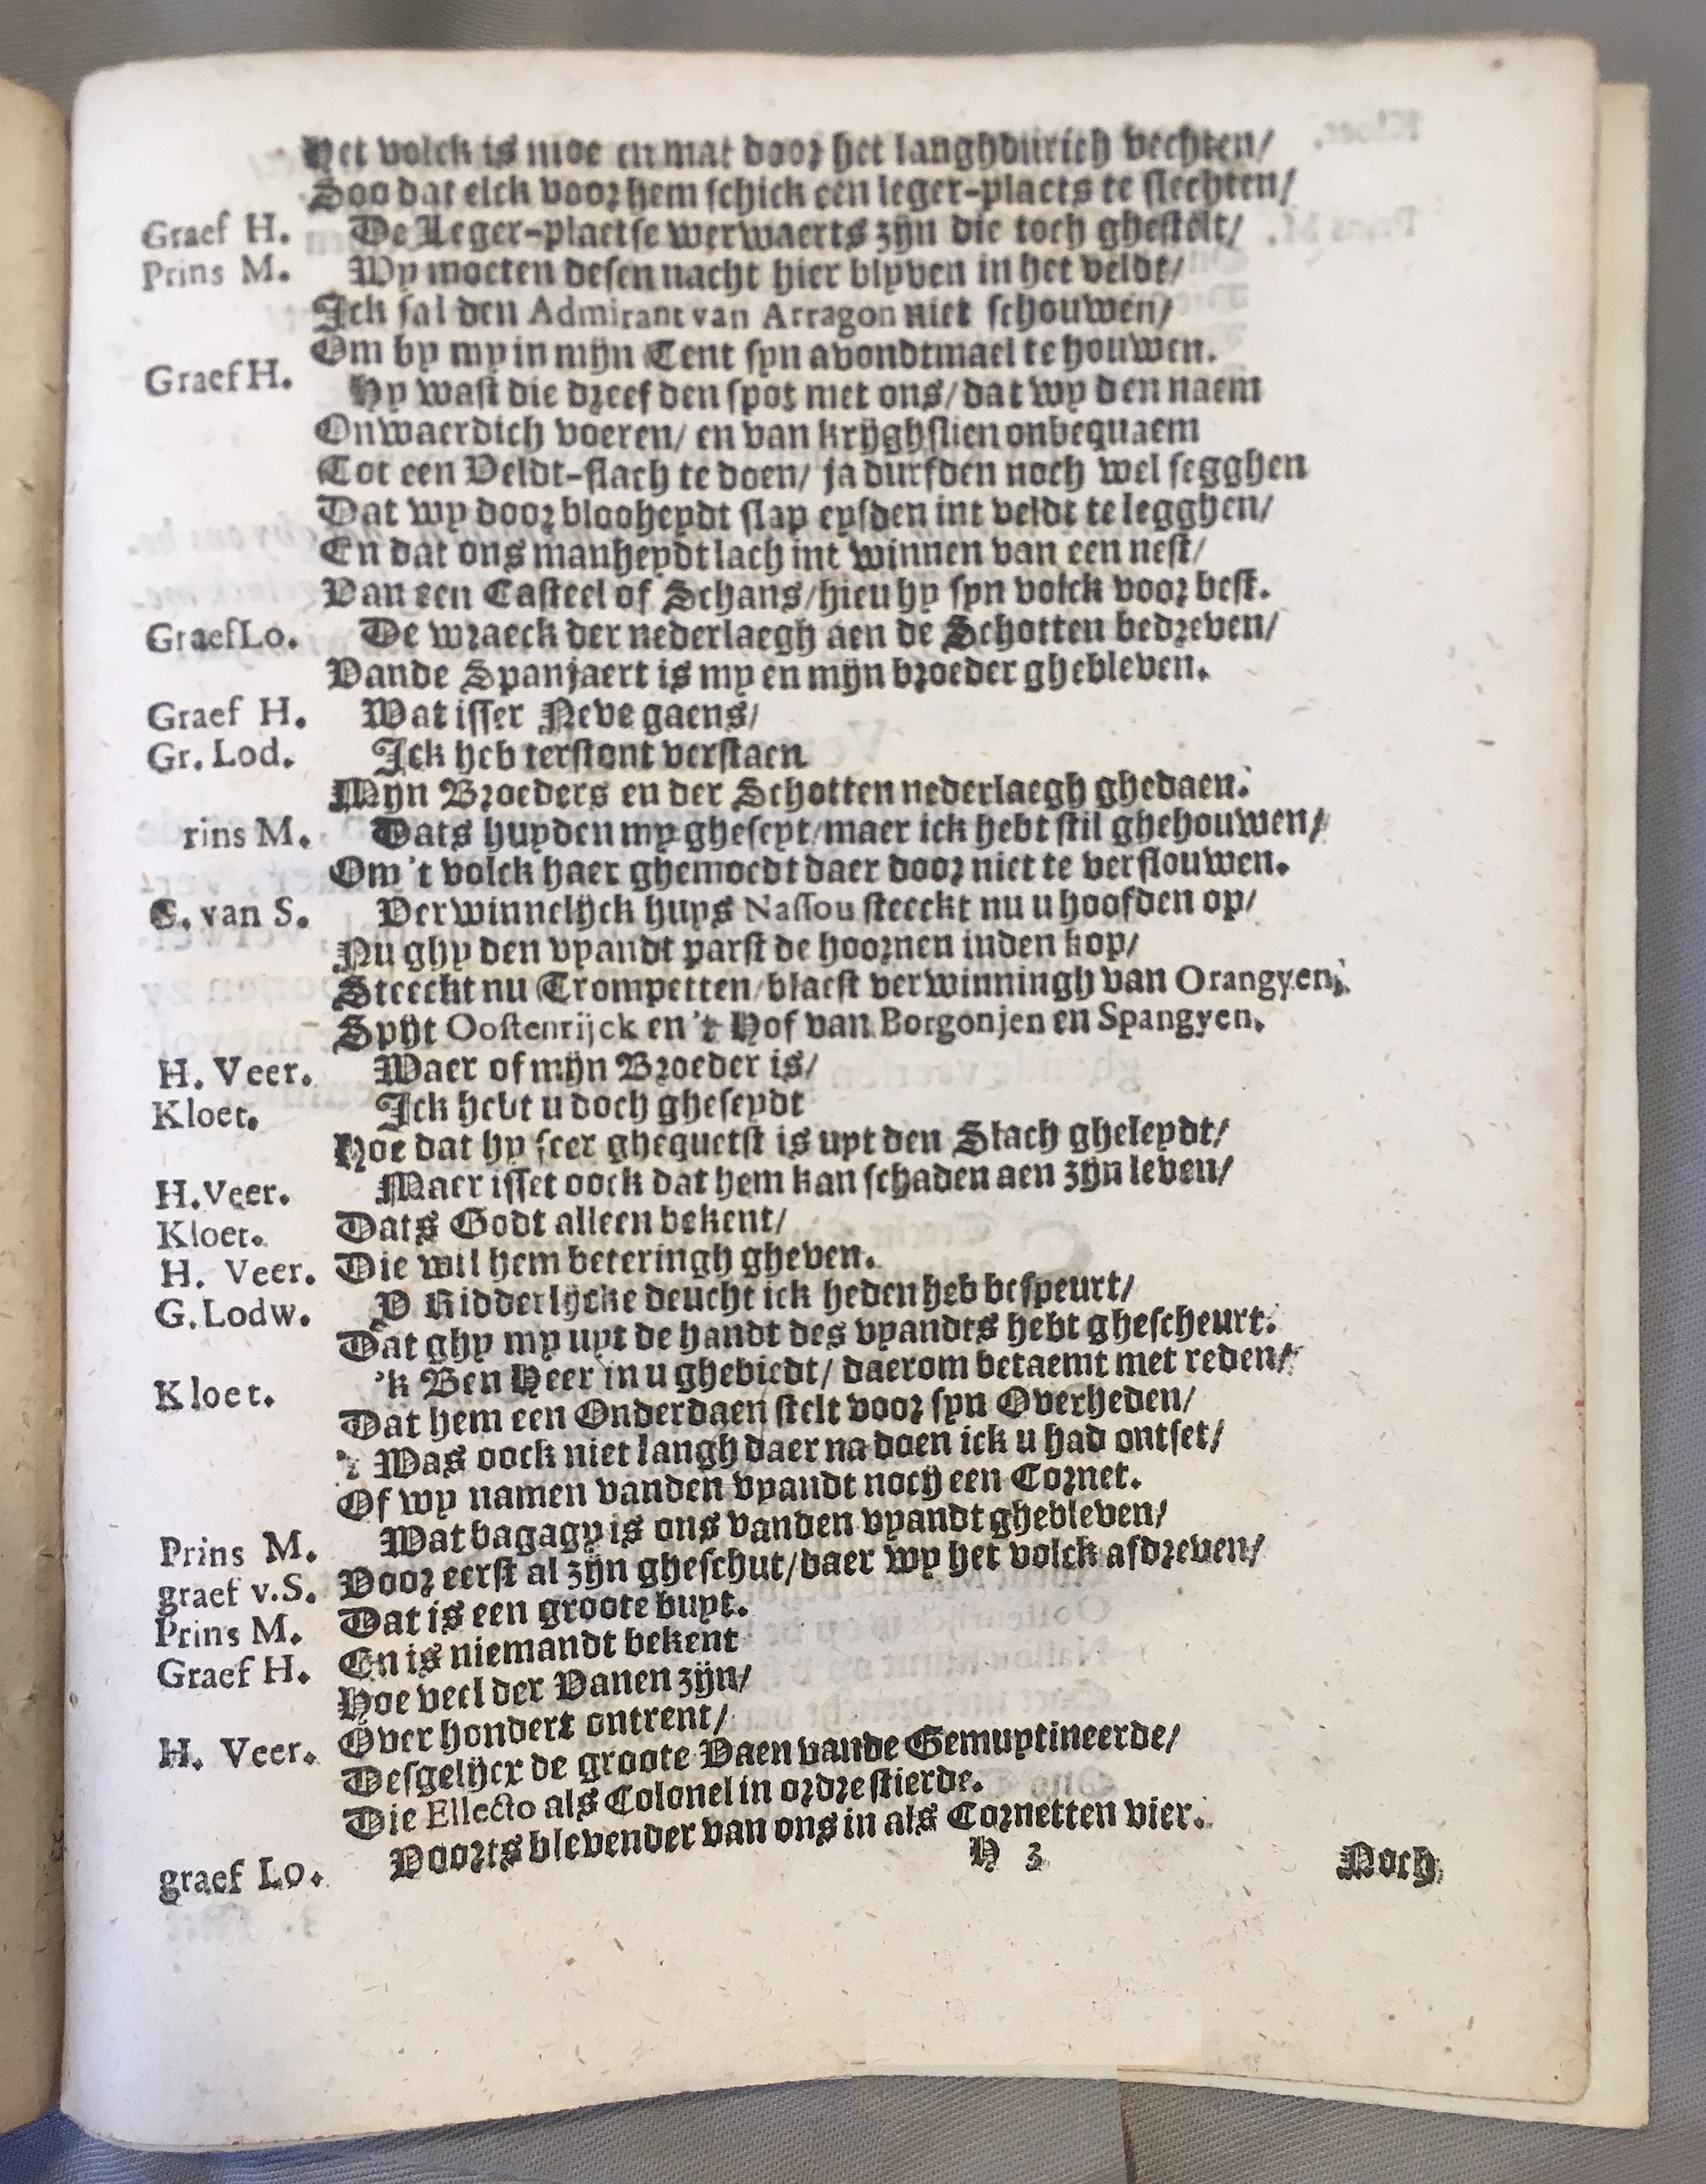 Het volck is moe en mat door het langhdurich vechten/
Soo dat elck voor hem schick een leger-plaets te slechten/
Graef H. De Leger-plaetse werwaerts zijn die toch ghestelt/
Prins M. Wy moeten desen nacht hier blyven in het veldt/
Ick sal den Admirant van Arragon niet schouwen/
Om by my in mijn Tent syn avondtmael te houwen.
Graef H. Hy wast die dreef den spot met ons/ dat wy den naem
Onwaerdich voeren/ en van krijghslien onbequaem
Tot een Veldt-slach te doen/ ja durfden noch wel segghen
Dat wy door blooheydt slap eysden int veldt te legghen/
En dat ons manheydt lach int winnen van een nest/
Van een Casteel of Schans/ hieu hy syn volck voor best.
Graef Lo. De wraeck der nederlaegh aen de Schotten bedreven/
Vande Spanjaert is my en mijn broeder ghebleven.
Graef H. Wat isser Neve gaens/
Gr. Lod. Ick heb terstont verstaen
Mijn Broeders en der Schotten nederlaegh ghedaen.
rins M. Dats huyden my gheseyt/ maer ick hebt stil ghehouwen/
Om 't volck haer ghemoedt daer door niet te verflouwen.
G. van S. Verwinnelijck huys Nassou steeckt nu u hoofden op/
Nu ghy den vyandt parst de hoornen inden kop/
Steeckt nu Trompetten/ blaest verwinningh van Orangyen,
Spijt Oostenrijck en 't Hof van Borgonjen en Spangyen.
H. Veer. Waer of mijn Broeder is/
Kloet. Ick hebt u doch gheseydt
Hoe dat hy seer ghequetst is uyt den Slach gheleydt/
H. Veer. Maer isset oock dat hem kan schaden aen zijn leven/
Kloet. Dats Godt alleen bekent/
H. Veer. Die wil hem beteringh gheven.
G. Lodw. V Ridderlijcke deucht ick heden heb bespeurt/
Dat ghy my uyt de handt des vyandts hebt ghescheurt.
Kloet. 'k Ben Heer in u ghebiedt/ daerom betaemt met reden/
Dat hem een Onderdaen stelt voor syn Overheden/
't Was oock niet langh daer na doen ick u had ontset/
Of wy namen vanden vyandt noch een Cornet.
Prins M. Wat bagagy is ons vanden vyandt ghebleven/
graef v. S. Voor eerst al zijn gheschut/ daer wy het volck afdreven/
Prins M. Dat is een groote buyt.
Graef H. En is niemandt bekent
Hoe veel der Vanen zijn/
H. Veer. Over hondert ontrent/
Desgelijcx de groote Vaen vande Gemuytineerde/
Die Ellecto als Colonel in ordre stierde.
graef Lo. Voorts blevender van ons in als Cornetten vier.
H 3 Noch